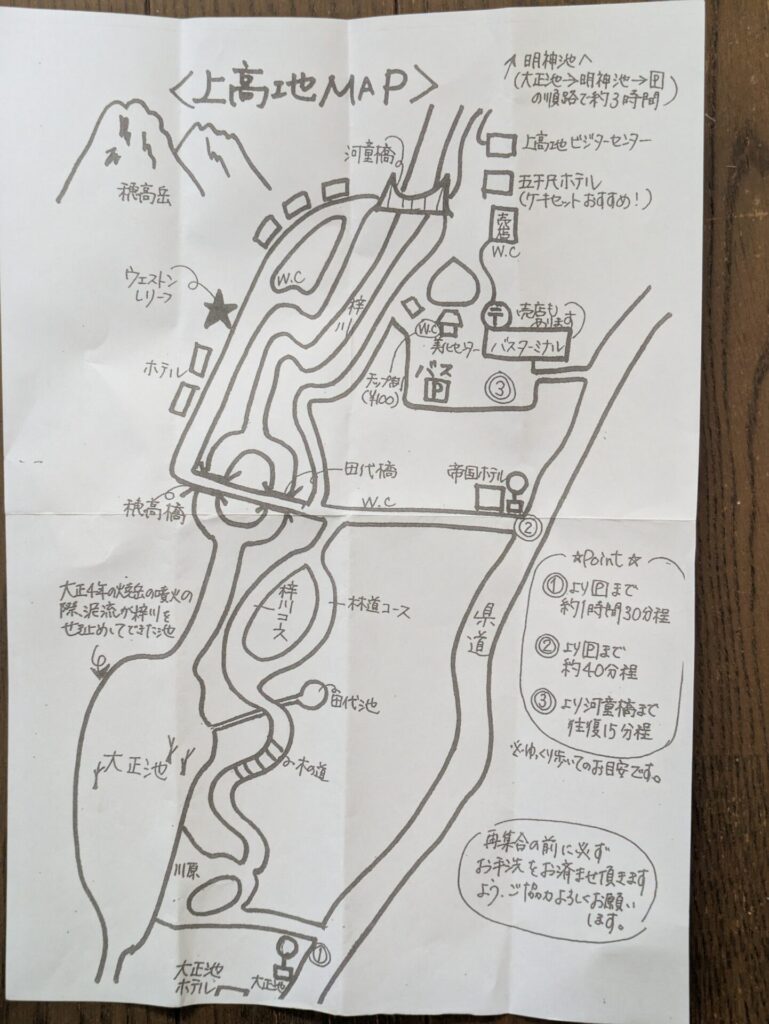 <上高地MAP>
↗ 明神池へ
(大正池→明神池→P
の順路で約3時間)
河童橋
上高地ビジターセンター
五千尺ホテル
(ケーキセットおすすめ!)
売店
W.C
穂高岳
W.C
ウェストン
レリーフ
梓川
〒
売店も
あります
バスターミナル
W.C
美化センター
チップ制
(¥100)
バス
P
③
ホテル
田代橋
帝国ホテル
W.C
②
穂高橋
☆Point☆
①よりPまで
約1時間30分程
②よりPまで
約40分程
③より河童橋まで
往復15分程
※ゆっくり歩いてのお目安です。
大正4年の焼岳の噴火の
際、泥流が梓川を
せき止めてできた池
梓川コース
林道コース
県道
田代池
大正池
木の道
再集合の前に必ず
お手洗をお済ませ頂きます
よう、ご協力よろしくお願い
します。
川原
大正池
ホテル
大正池
①